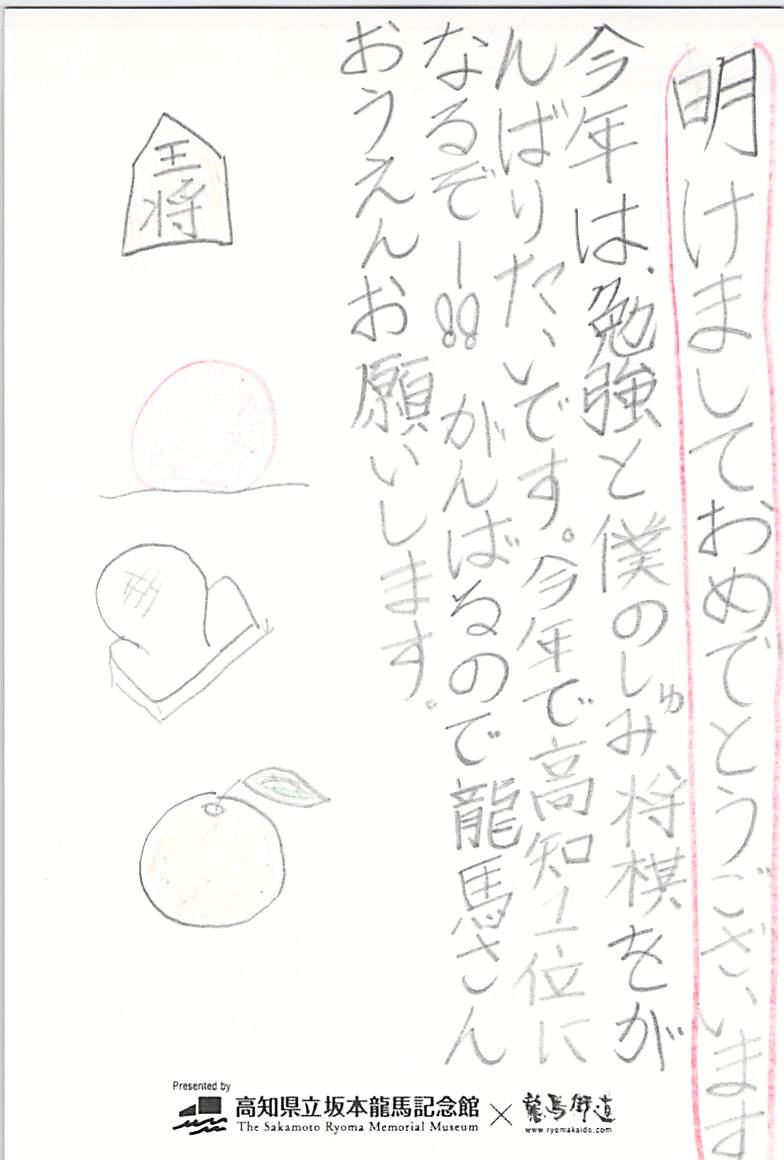 明けましておめでとうございます
今年は、勉強と僕のしゅみ、将棋をが
んばりたいです。今年で高知1位に
なるぞー!! がんばるので龍馬さん
おうえんお願いします。
王将
Presented by
高知県立坂本龍馬記念館
The Sakamoto Ryoma Memorial Museum
×
龍馬街道
www.ryomakaido.com